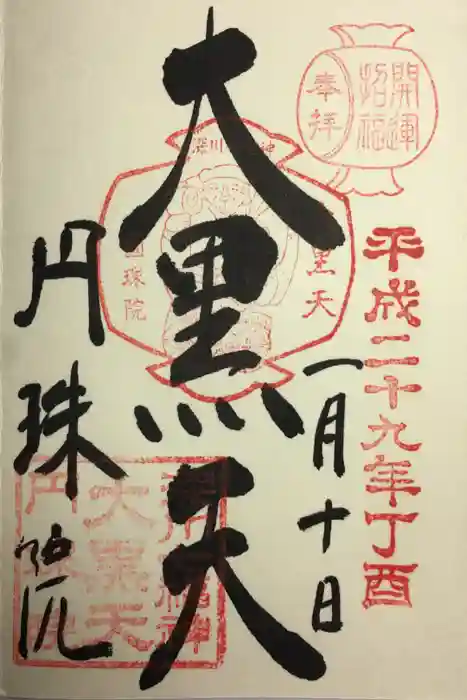 開運
招福
奉拝
平成二十九年丁酉
一月十日
大黒天
深川
神
黒天
円珠院
円珠院
深川
福神
大黒天
円珠院